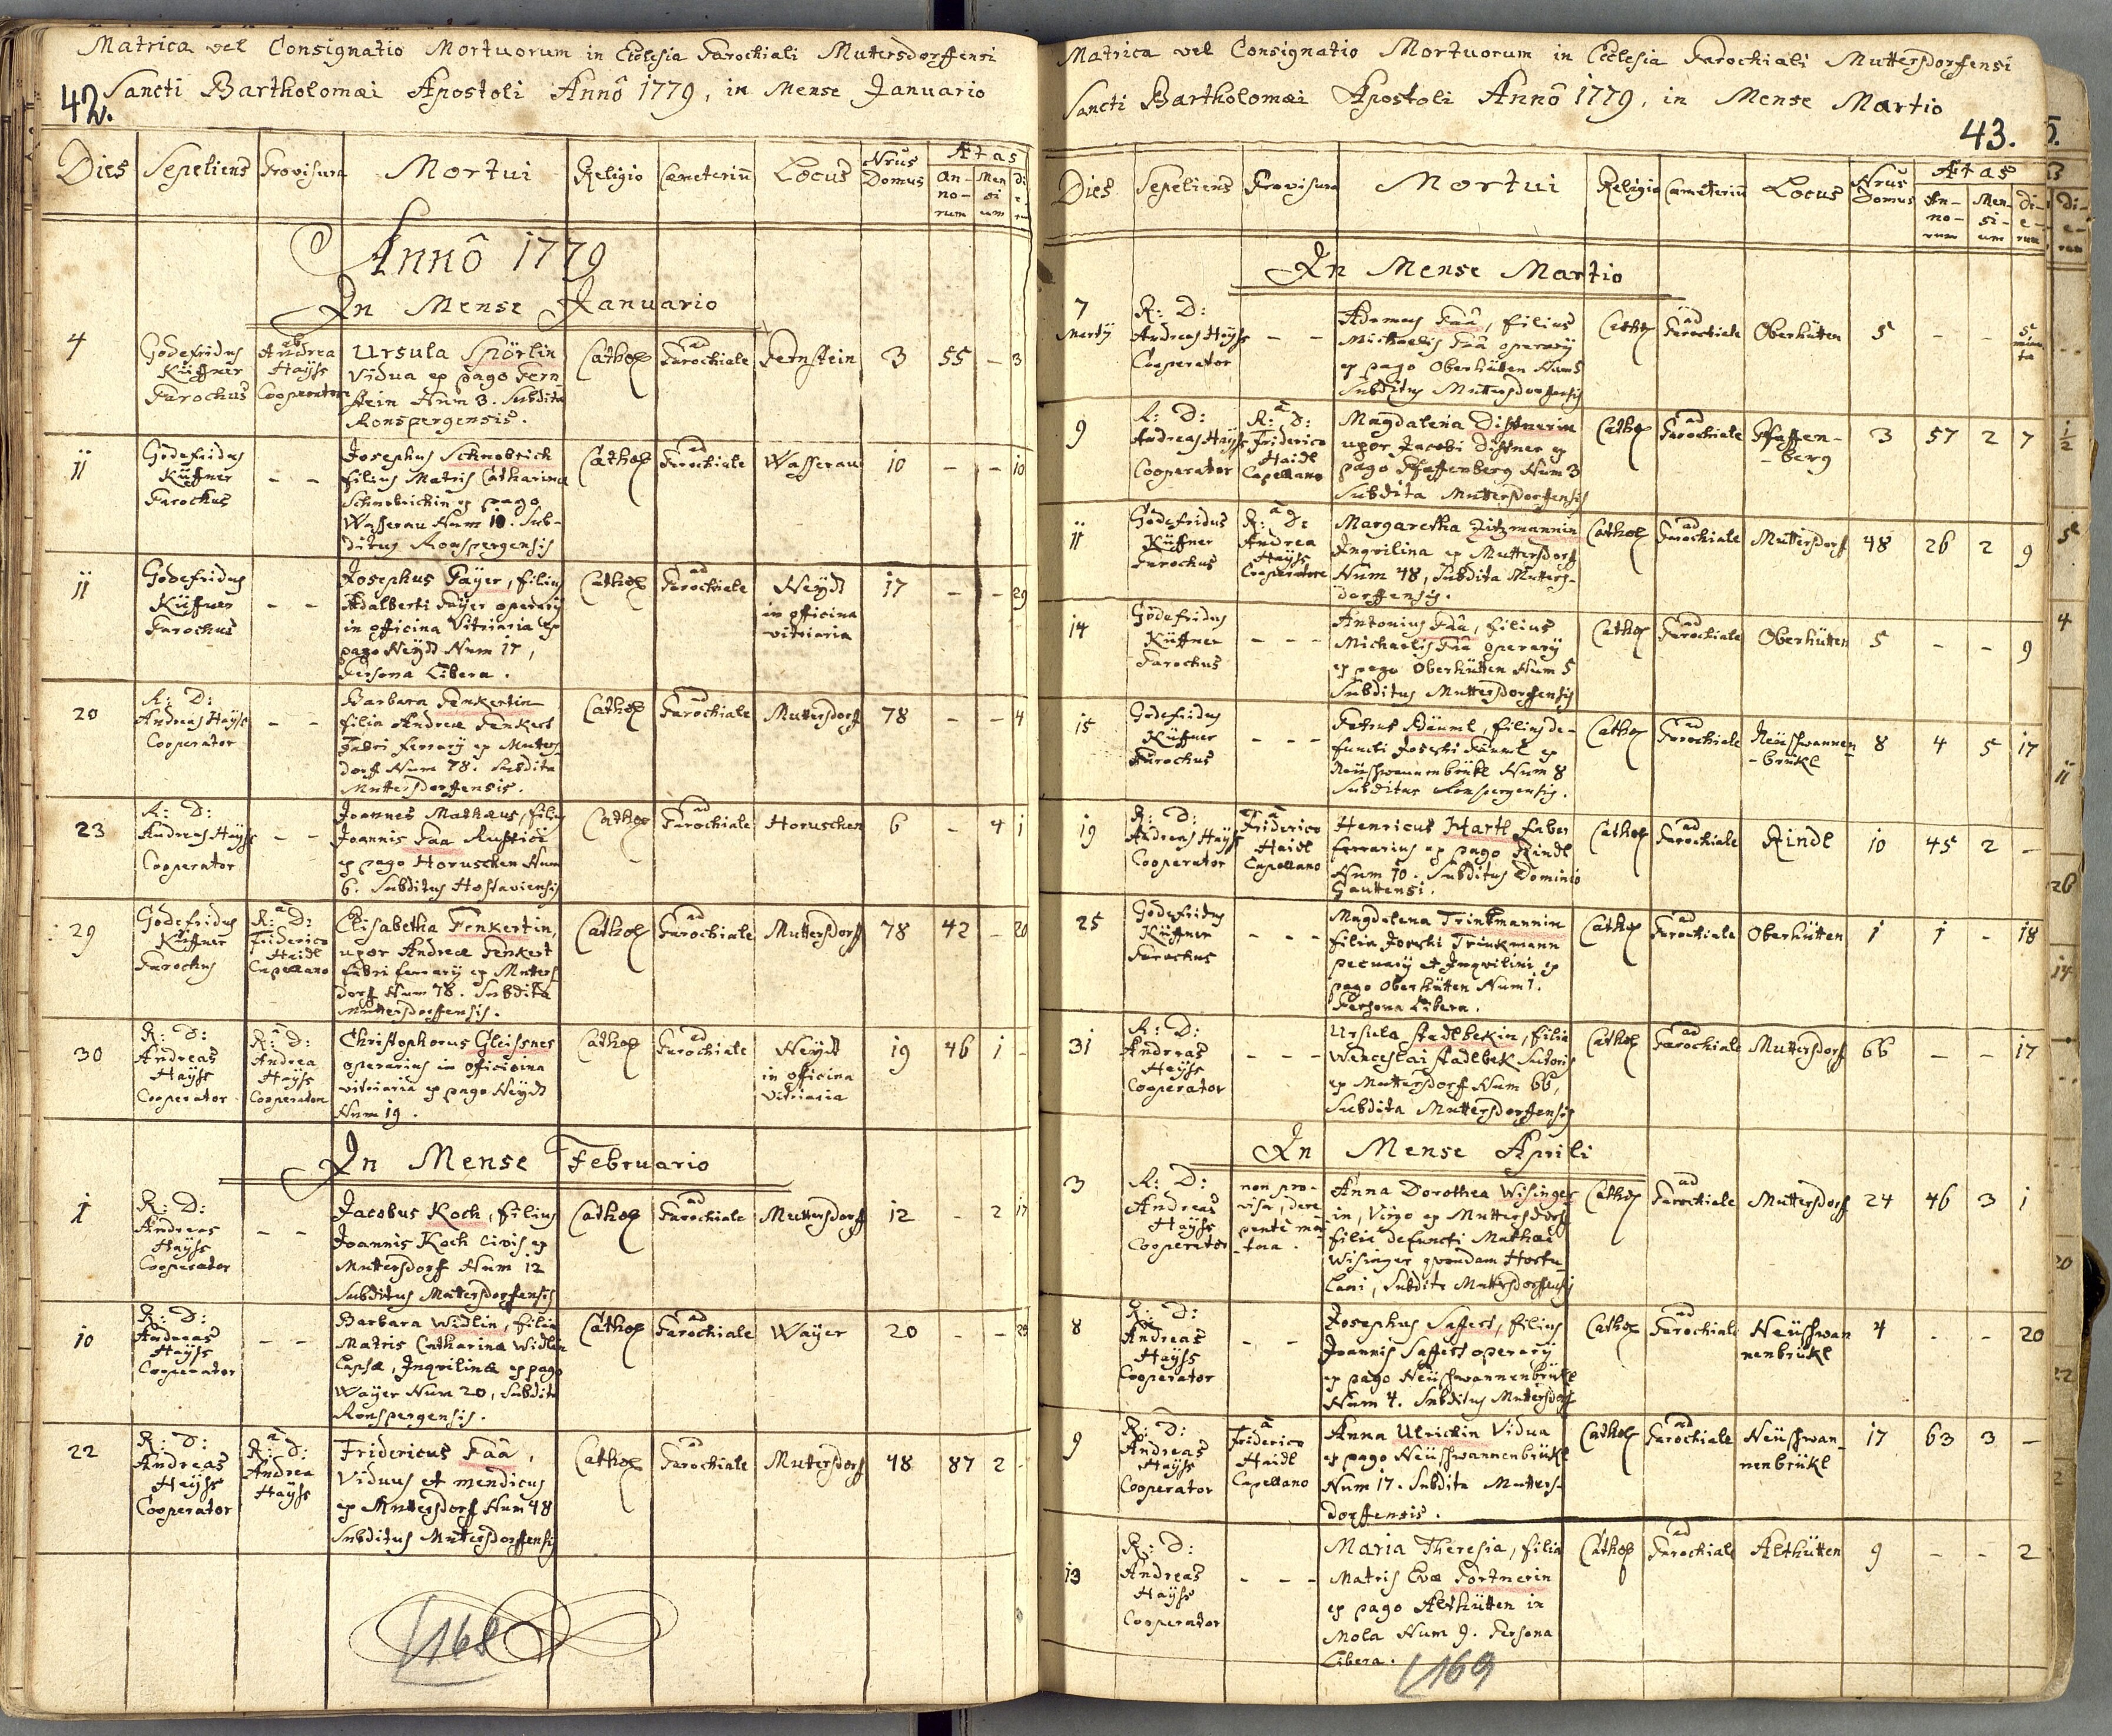 Matrica vel Consignatio Mortuorum in Ecclesia Parochiali Muttersdorffensi
42. Sancti Bartholomæi Apostoli Annô 1779, in Mense Januario
Dies Sepeliens Provisura Mortui Religio Cæmeteriū Locus Nrus Domus Ætas
An-no-rum Men-si-um di-e-rum
Annô 1779
In Mense Januario
4 Godefridus Ursula Spörlin Cathol ad Parochiale Pernstein 3 55 – 3
Küffner ab Andrea Vidua ex pago Pern-
Parochus Haÿss stein Num 3. Subdita
Cooperatore Ronspergensis.
11 Godefridus Josephus Schnobrich Cathol ad Parochiale Wasserau 10 – – 10
Küffner – – filius Matris Catharinæ
Parochus Schnobrichin ex pago
Wasserau Num 10. Sub-
ditus Ronspergensis
11 Godefridus Josephus Paÿer, filius Cathol ad Parochiale Neÿdl 17 – – 29
Küffner – – Adalberti Paÿer operarÿ in officina
Parochus in officina Vitriaria ex vitriaria
pago Neÿdl Num 17,
Persona Libera.
20 R: D: Barbara Penkertin Cathol ad Parochiale Muttersdorf 78 – – 4
Andreas Haÿss – – filia Andreæ Penkert
Cooperator Fabri ferrarÿ ex Mutters-
dorf Num 78. Subdita
Muttersdorfensis.
23 R: D: Joannes Mathæus, filius Cathol ad Parochiale Horuschen 6 – 4 1
Andreas Haÿss – – Joannis Paa Rustici
Cooperator ex pago Horuschen Num
6. Subditus Hostaviensis
29 Godefridus R: à D: Elisabetha Penkertin, Cathol ad Parochiale Muttersdorf 78 42 – 20
Küffner Friderico uxor Andreæ Penkert
Parochus Haidl fabri ferrarÿ ex Mutters-
Capellano dorf Num 78. Subdita
Muttersdorffensis.
30 R: D: R: à D: Christophorus Gleissner Cathol ad Parochiale Neÿdl 19 46 1 –
Andreas Andrea operarius in officina in officina
Haÿss Haÿss vitriaria ex pago Neÿdl vitriaria
Cooperator Cooperatore Num 19.
In Mense Februario
1 R: D: Jacobus Koch, filius Cathol ad Parochiale Muttersdorf 12 – 2 17
Andreas – – Joannis Koch civis ex
Haÿss Muttersdorf Num 12
Cooperator Subditus Muttersdorfensis
10 R: D: Barbara Widlin, filia Cathol ad Parochiale Waÿer 20 – –
Andreas – – Matris Catharinæ Widlin
Haÿss Inqvilinæ ex pago
Cooperator Waÿer Num 20, Subdita
Ronspergensis.
22 R: D: R: à D: Fridericus Paâ, Cathol ad Parochiale Muttersdorf 48 87 2 –
Andreas Andrea Viduus et mendicus
Haÿss Haÿss ex Muttersdorf Num 48
Cooperator Subditus Muttersdorffensis
168
Matrica vel Consignatio Mortuorum in Ecclesia Parochiali Muttersdorfensi
Sancti Bartholomæi Apostoli Annô 1779, in Mense Martio
43.
Dies Sepeliens Provisura Mortui Religio Cæmeteriū Locus Nrus Domus Ætas
An-no-rum Men-si-um di-e-rum
In Mense Martio
7 R: D: Adamus Paâ, filius Cathol ad Parochiale Oberhütten 5 – – 5
Martÿ Andreas Haÿss – – Michaelis Paâ operarÿ minuta
Cooperator ex pago Oberhütten Num 5
Subditus Muttersdorfensis
9 R: D: R: à D: Magdalena Distnerin Cathol ad Parochiale Pfaffen- 3 57 2 7
Andreas Haÿss Friderico uxor Jacobi Distner ex -berg
Cooperator Haidl pago Pfaffenberg Num 3
Capellano Subdita Muttersdorfensis
11 Godefridus R: à D: Margaretha Zitzmannin Cathol ad Parochiale Muttersdorf 48 26 2 9
Küffner Andrea Inqvilina ex Muttersdorf
Parochus Haÿss Num 48, Subdita Mutters-
Cooperatore dorffensis.
14 Godefridus Antonius Paâ, filius Cathol ad Parochiale Oberhütten 5 – – 9
Küffner – – – Michaelis Paâ operarÿ
Parochus ex pago Oberhütten Num 5
Subditus Muttersdorffensis
15 Godefridus Petrus Bäuml, filius de- Cathol ad Parochiale Neüschwannen- 8 4 5 17
Küffner – – – functi Josephi Bäuml ex -brükl
Parochus Neüschwannenbrükl Num 8
Subditus Ronspergensis.
19 R: D: à Friderico Henricus Hartl faber Cathol ad Parochiale Rindl 10 45 2 –
Andreas Haÿss Haidl ferrarius ex pago Rindl
Cooperator Capellano Num 10. Subditus Dominio
Gauttensi.
25 Godefridus Magdalena Trinkmannin Cathol ad Parochiale Oberhütten 1 1 – 18
Küffner – – – filia Josephi Trinkmann
Parochus pecuarÿ et Inqvilini ex
pago Oberhütten Num 1.
Persona Libera.
31 R: D: Ursula Stadlbekin, filia Cathol ad Parochiale Muttersdorf 66 – – 17
Andreas – – – Wenceslai Stadlbek Sutoris
Haÿss ex Muttersdorf Num 66,
Cooperator Subdita Muttersdorffensis
In Mense Aprili
3 R: D: non pro- Anna Dorothea Wisinger Cathol ad Parochiale Muttersdorf 24 46 3 1
Andreas visa, de re- in, Virgo ex Muttersdorf
Haÿss pente mor- filia defuncti Mathæi
Cooperator -tua. Wisinger qvondam Hortu-
lani, Subdita Muttersdorffensis
8 R: D: Josephus Saffert, filius Cathol ad Parochiale Neüschwan 4 – – 20
Andreas – – Joannis Saffert operarÿ nenbrükl
Haÿss ex pago Neüschwannenbrükl
Cooperator Num 4. Subditus Muttersdorf
9 R: D: à Anna Ulrichin Vidua Cathol ad Parochiale Neüschwan- 17 63 3 –
Andreas Friderico ex pago Neüschwannenbrükl nenbrükl
Haÿss Haidl Num 17. Subdita Mutters-
Cooperator Capellano dorffensis.
13 R: D: Maria Theresia, filia Cathol ad Parochiale Althütten 9 – – 2
Andreas – – – Matris Evæ Portnerin
Haÿss ex pago Althütten in
Cooperator Mola Num 9. Persona
Libera.
169